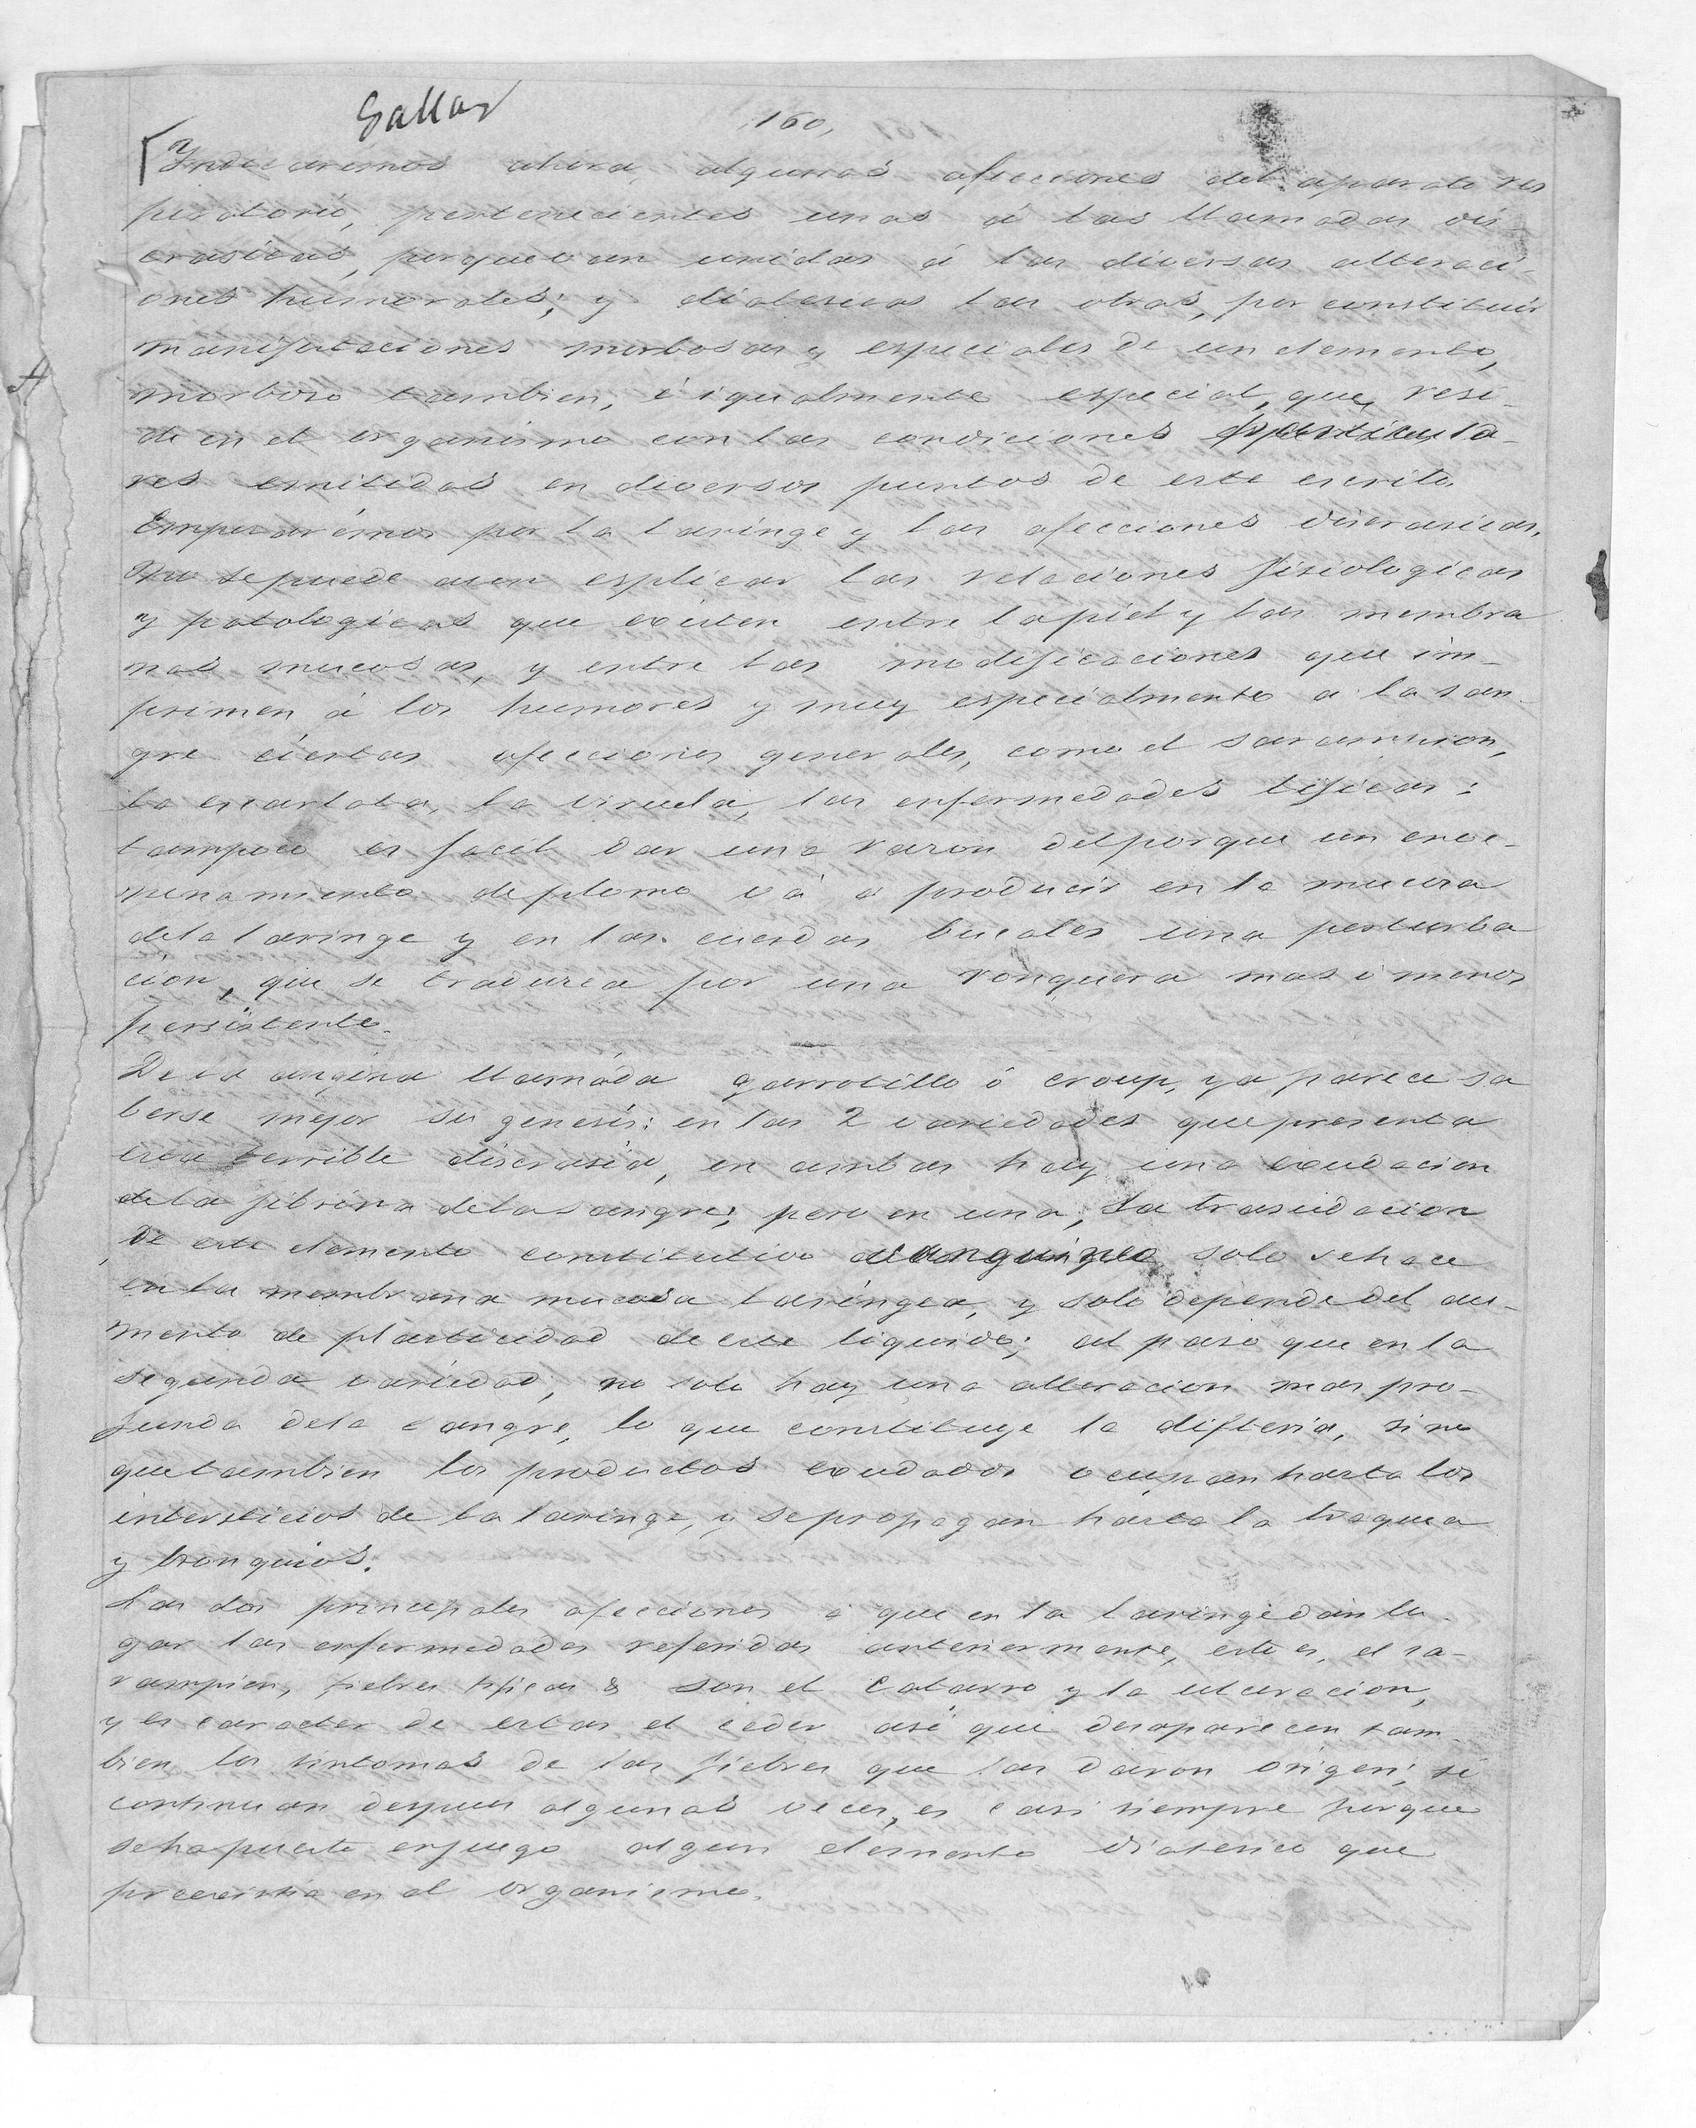 Gallar
160,
Indicaremos ahora, algunas afecciones del aparato res
piratorio, pertenecientes unas á las llamadas dis
crasicas, porque van unidas á las diversas alteraci-
ones humorales; y diatesicas las otras, por constituir
manifestaciones morbosas y especiales de un elemento,
morboso tambien, é igualmente especial, que resi-
de en el organismo con las condiciones particula-
res emitidas en diversos puntos de este escrito.
Empezarémos por la laringe y las afecciones discrasicas.
No se puede aun esplicar las relaciones fisiologicas
y patologicas que existen entre la piel y las membra
nas mucosas, y entre las modificaciones que im-
primen á los humores y muy especialmente a la san-
gre ciertas afecciones generales, como el sarampion,
la escarlata, la viruela, las enfermedades tificas:
tampoco es facil dar una razon del porque un enve-
nenamiento de plomo vá a producir en la mucosa
de la laringe y en las cuerdas bucales una perturba
cion, que se traduzca por una ronquera mas o menos
persistente.
De la angina llamada garrotillo ó croup, ya parece sa
berse mejor su genesis: en las 2 variedades que presenta
esta terrible discrasia, en ambas hay una exudacion
de la fibrina de la sangre; pero en una, la trasudacion
de este elemento constitutivo sanguineo solo se hace
en la membrana mucosa laringea, y solo depende del au-
mento de plasticidad de este liquido; al paso que en la
segunda variedad, no solo hay una alteracion mas pro-
funda de la sangre, lo que constituye la difteria, sino
que tambien los productos exudados ocupan hasta los
intersticios de la laringe, y se propagan hasta la traquea
y bronquios.
Las dos principales afecciones a que en la laringe dan lu-
gar las enfermedades referidas anteriormente, esto es, el sa-
rampion, fiebres tificas & son el catarro y la ulceracion,
y es caracter de estas el ceder asi que desaparecen tam-
bien los sintomas de las fiebres que las daron origen; si
continuan despues algunas veces, es casi siempre porque
se ha puesto en juego algun elemento diatesico que
preexistia en el organismo.